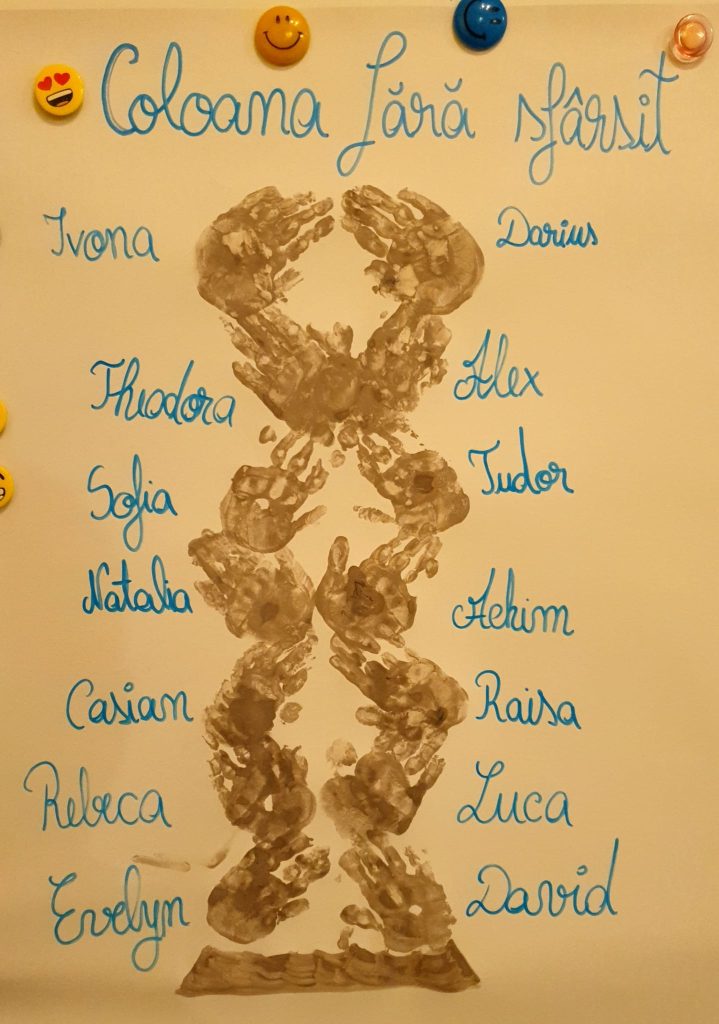 Coloana fără sfârsit
Ivona Darius
Theodora Alex
Sofia Tudor
Natalia Hekim
Casian Raisa
Rebeca Luca
Evelyn David